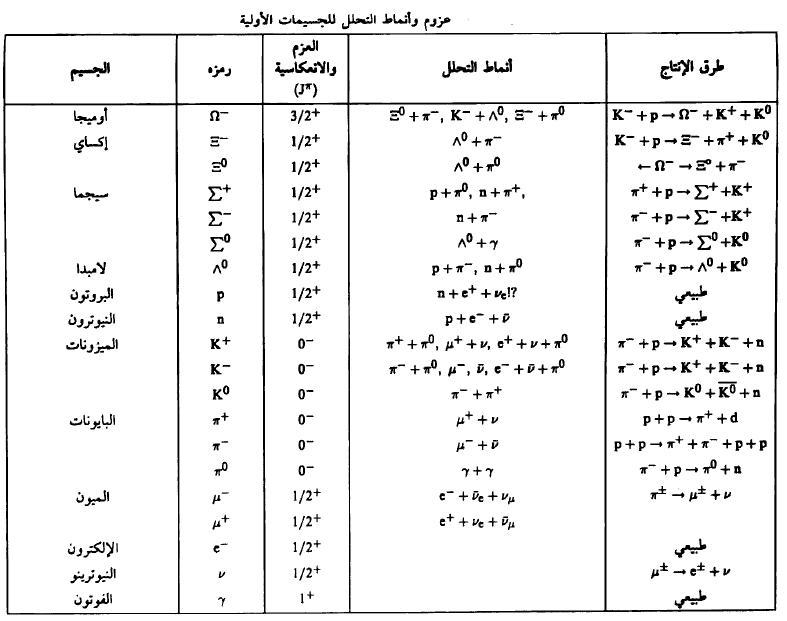 عزوم وأنماط التحلل للجسيمات الأولية
الجسيم | رمزه | العزم والانعكاسية (Jπ) | أنماط التحلل | طرق الإنتاج
أوميجا | Ω⁻ | 3/2⁺ | Ξ⁰ + π⁻, K⁻ + Λ⁰, Ξ⁻ + π⁰ | K⁻ + p → Ω⁻ + K⁺ + K⁰
إكساي | Ξ⁻ | 1/2⁺ | Λ⁰ + π⁻ | K⁻ + p → Ξ⁻ + π⁺ + K⁰
Ξ⁰ | 1/2⁺ | Λ⁰ + π⁰ | ← Ω⁻ → Ξ⁰ + π⁻
سيجما | Σ⁺ | 1/2⁺ | p + π⁰, n + π⁺, | π⁺ + p → Σ⁺ + K⁺
Σ⁻ | 1/2⁺ | n + π⁻ | π⁻ + p → Σ⁻ + K⁺
Σ⁰ | 1/2⁺ | Λ⁰ + γ | π⁻ + p → Σ⁰ + K⁰
لامبدا | Λ⁰ | 1/2⁺ | p + π⁻, n + π⁰ | π⁻ + p → Λ⁰ + K⁰
البروتون | p | 1/2⁺ | n + e⁺ + νe!? | طبيعي
النيوترون | n | 1/2⁺ | p + e⁻ + ν̄ | طبيعي
الميزونات | K⁺ | 0⁻ | π⁺ + π⁰, μ⁺ + ν, e⁺ + ν + π⁰ | π⁻ + p → K⁺ + K⁻ + n
K⁻ | 0⁻ | π⁻ + π⁰, μ⁻, ν̄, e⁻ + ν̄ + π⁰ | π⁻ + p → K⁺ + K⁻ + n
K⁰ | 0⁻ | π⁻ + π⁺ | π⁻ + p → K⁰ + K̅⁰ + n
البايونات | π⁺ | 0⁻ | μ⁺ + ν | p + p → π⁺ + d
π⁻ | 0⁻ | μ⁻ + ν̄ | p + p → π⁺ + π⁻ + p + p
π⁰ | 0⁻ | γ + γ | π⁻ + p → π⁰ + n
الميون | μ⁻ | 1/2⁺ | e⁻ + ν̄e + νμ | π± → μ± + ν
μ⁺ | 1/2⁺ | e⁺ + νe + ν̄μ
الإلكترون | e⁻ | 1/2⁺ | طبيعي
النيوترينو | ν | 1/2⁺ | μ± → e± + ν
الفوتون | γ | 1⁺ | طبيعي